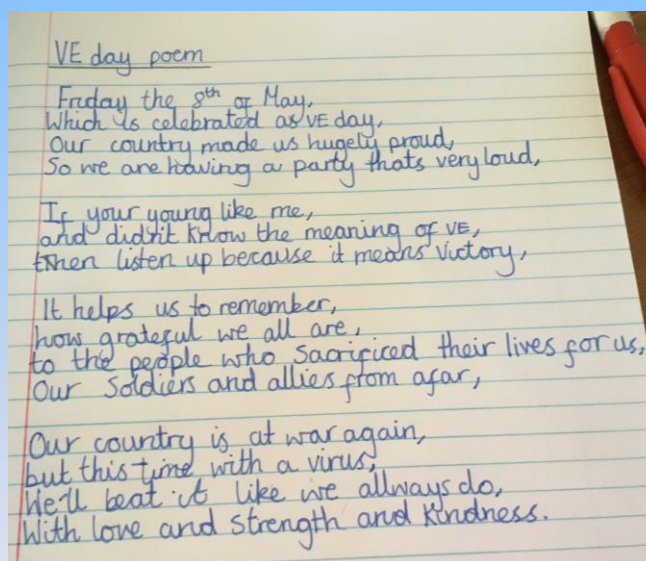 VE day poem
Friday the 8th of May,
Which is celebrated as VE day,
Our country made us hugely proud,
So we are having a party thats very loud,
If your young like me,
and didn't know the meaning of VE,
then listen up because it means victory,
It helps us to remember,
how grateful we all are,
to the people who sacrificed their lives for us,
Our soldiers and allies from afar,
Our country is at war again,
but this time with a virus,
We'll beat it like we allways do,
With love and strength and kindness.